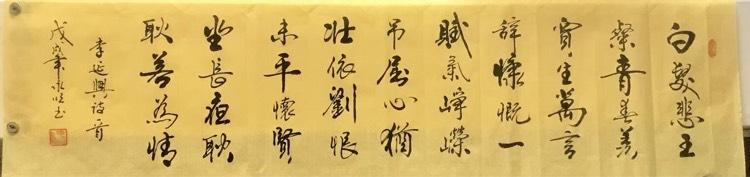 白髮悲王
粲青春羨
賈生萬言
辭慷慨一
賦氣崢嶸
吊屈心猶
壯依劉恨
未平懷賢
坐長夜耿
耿若為情
李延興詩首
戊戌年永書